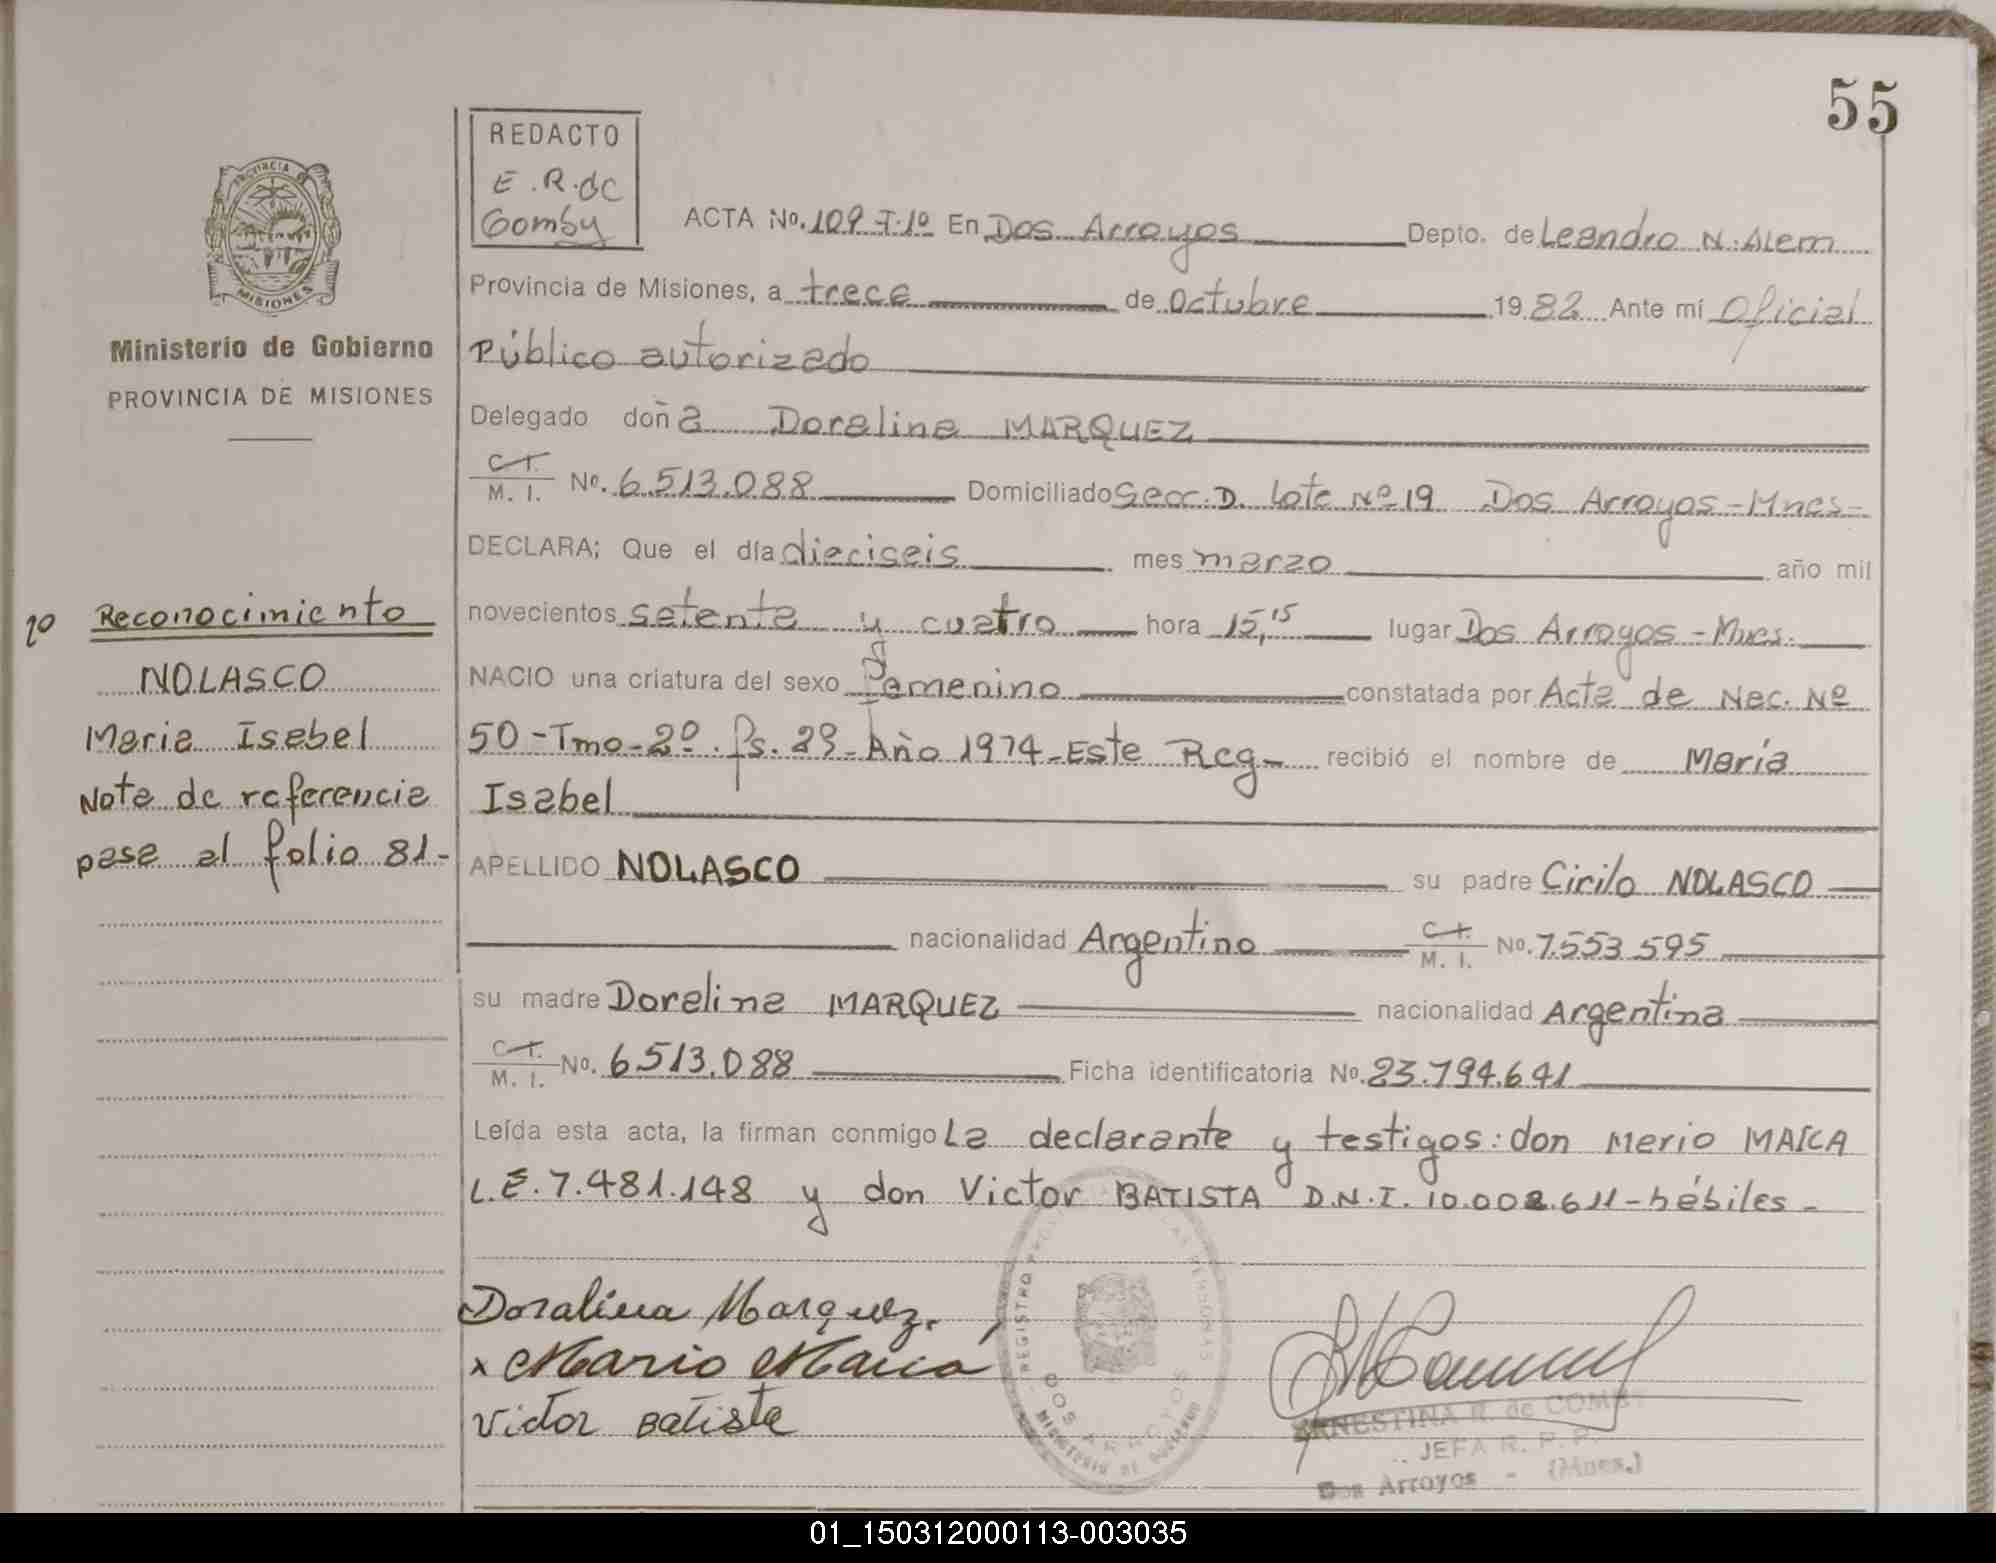 55
REDACTO
E.R.de
Gomby
PROVINCIA
MISIONES
Ministerio de Gobierno
PROVINCIA DE MISIONES
ACTA No. 109 T.1º En Dos Arroyos Depto. de Leandro N. Alem
Provincia de Misiones, a trece de Octubre 1982 Ante mí Oficial
Público autorizado
Delegado doña Doralina MARQUEZ
C.I. M. I. No. 6.513.088 Domiciliado Secc. D. Lote Nº 19 Dos Arroyos - Mnes -
DECLARA; Que el día dieciseis mes marzo año mil
novecientos setenta y cuatro hora 15,15 lugar Dos Arroyos - Mnes.
NACIO una criatura del sexo femenino constatada por Acta de Nac. Nº
50 - Tmo - 2º. fs. 29 - Año 1974 - Este Reg - recibió el nombre de María
Isabel
APELLIDO NOLASCO su padre Cirilo NOLASCO
nacionalidad Argentino C.I. M. I. No. 7.553.595
su madre Doralina MARQUEZ nacionalidad Argentina
C.I. M. I. No. 6513.088 Ficha identificatoria No. 23.794.641
Leída esta acta, la firman conmigo La declarante y testigos: don Mario MAICA
L.E. 7.481.148 y don Victor BATISTA D.N.I. 10.002.611 - hábiles -
1º Reconocimiento
NOLASCO
Maria Isabel
Nota de referencia
pasa al folio 81 -
Doralina Marquez.
x Mario Maica
Victor Batista
REGISTRO PERSONAS
DOS ARROYOS
MINISTERIO DE GOBIERNO
ERNESTINA R. de COMBY
JEFA R. P. P.
Dos Arroyos - (Mnes.)
01_150312000113-003035